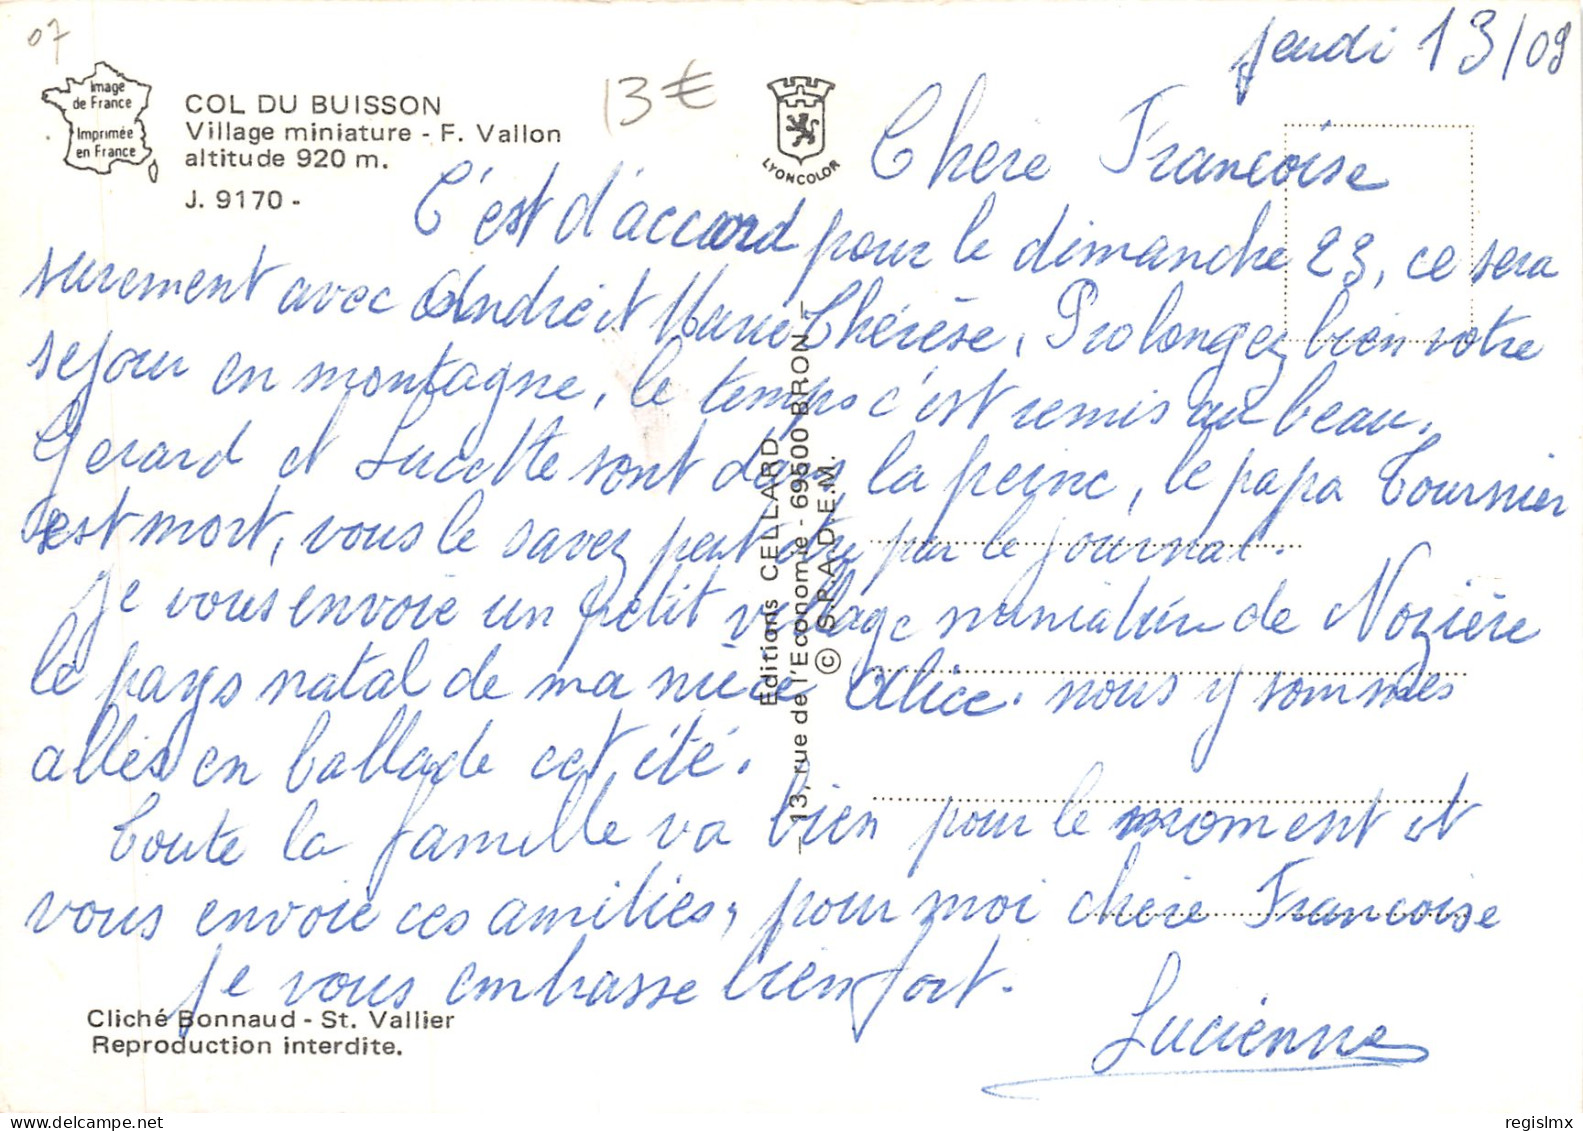 07
jeudi 13/09
Image
de France
Imprimée
en France
COL DU BUISSON
Village miniature - F. Vallon
altitude 920 m.
J. 9170 -
13 €
LYONCOLOR
Chère Francoise
C'est d'accord pour le dimanche 23, ce sera
surement avec André et Marie Thérèse, Prolongez bien votre
sejour en montagne, le temps c'est remis au beau.
Gerard et Lucette sont dans la peine, le papa Tournier
est mort, vous le savez peut etre par le journal.
Je vous envoie un petit village miniature de Nozière
le pays natal de ma nièce Alice. nous y sommes
allés en ballade cet été.
Toute la famille va bien pour le moment et
vous envoie ces amitiés, pour moi chère Francoise
je vous embrasse bien fort.
Lucienne
Editions CELLARD
— 13, rue de l'Economie - 69500 BRON —
© S.P.A.D.E.M.
Cliché Bonnaud - St. Vallier
Reproduction interdite.
regislmx